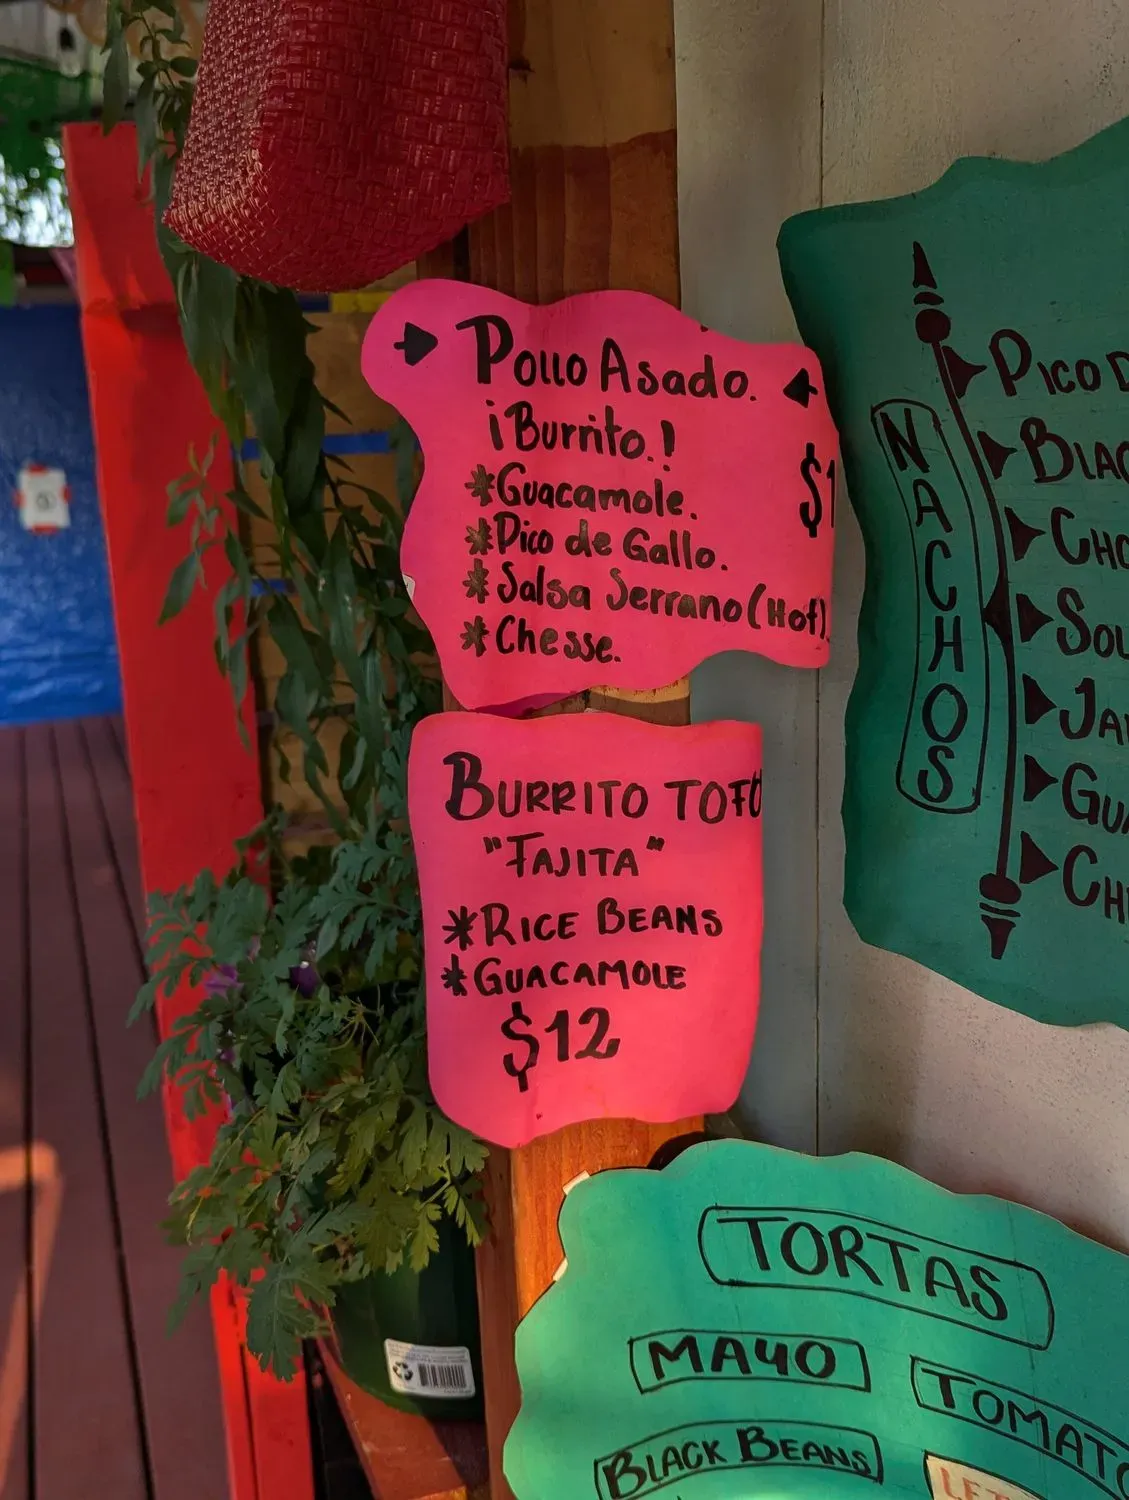 Pollo Asado.
¡Burrito.!
*Guacamole.
*Pico de Gallo.
*Salsa Serrano (Hot).
*Chesse.
$1
BURRITO TOFU
"FAJITA"
*RICE BEANS
*GUACAMOLE
$12
NACHOS
PICO D
BLAC
CHO
SOU
JA
GUA
CH
TORTAS
MAYO
TOMATO
BLACK BEANS
LET